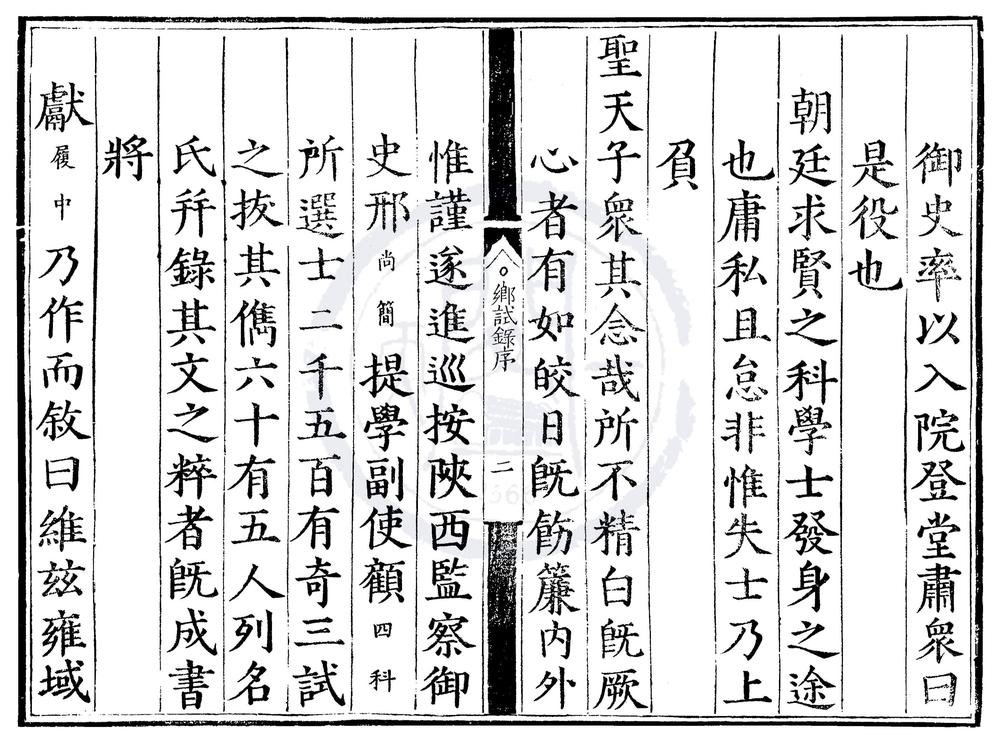 御史率以入院登堂肅衆曰
是役也
朝廷求賢之科學士發身之途
也庸私且怠非惟失士乃上
負
聖天子衆其念哉所不精白旣厥
心者有如皎日旣飭簾内外
鄉試錄序
二
惟謹遂進巡按陝西監察御
史邢尚簡提學副使顧四科
所選士二千五百有奇三試
之拔其儁六十有五人列名
氏幷錄其文之粹者旣成書
將
獻履中乃作而敘曰維玆雍域